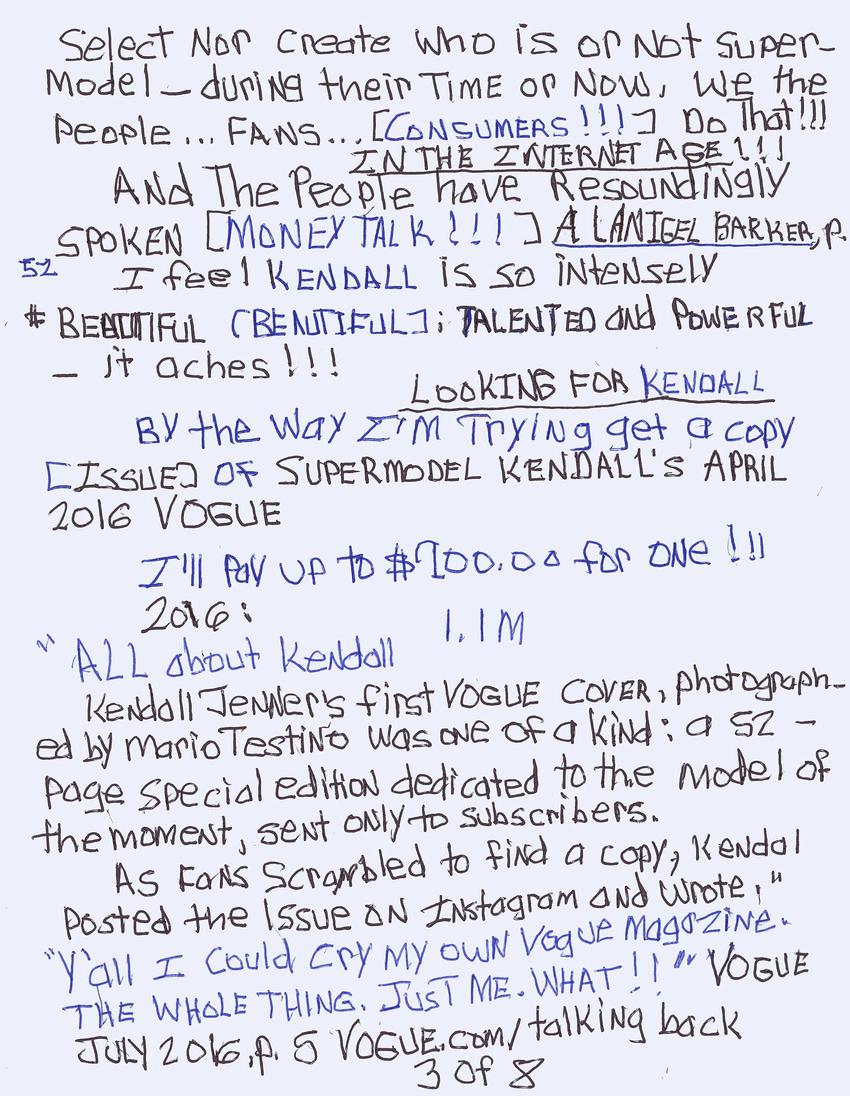 Select Nor Create who is or Not Super-
Model - during their Time or Now, We the
People... FANS... [CONSUMERS!!!] Do That!!!
IN THE INTERNET AGE!!!
And The People have Resoundingly
SPOKEN [MONEY TALK!!!] A LA NIGEL BARKER, p.
52
I feel KENDALL is so intensely
* BEAUTIFUL [BEAUTIFUL]; TALENTED and POWERFUL
- it aches!!!
LOOKING FOR KENDALL
By the Way I'M Trying get a copy
[ISSUE] OF SUPERMODEL KENDALL'S APRIL
2016 VOGUE
I'll pay up to $100.00 for one!!!
2016: 1.1M
" ALL about Kendall
Kendall Jenner's first VOGUE COVER, photograph-
ed by Mario Testino was one of a kind: a 52 -
page special edition dedicated to the model of
the moment, sent only to subscribers.
As Fans Scrambled to find a copy, Kendal
posted the issue on Instagram and wrote,"
"Y'all I could cry my own Vogue magazine.
THE WHOLE THING. JUST ME. WHAT!!"" VOGUE
JULY 2016, p. 5 VOGUE.com/talking back
3 of 8